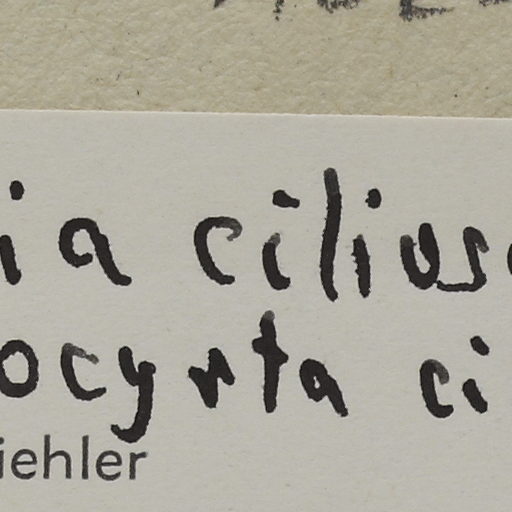 ia cilios
ocyrta ci
iehler